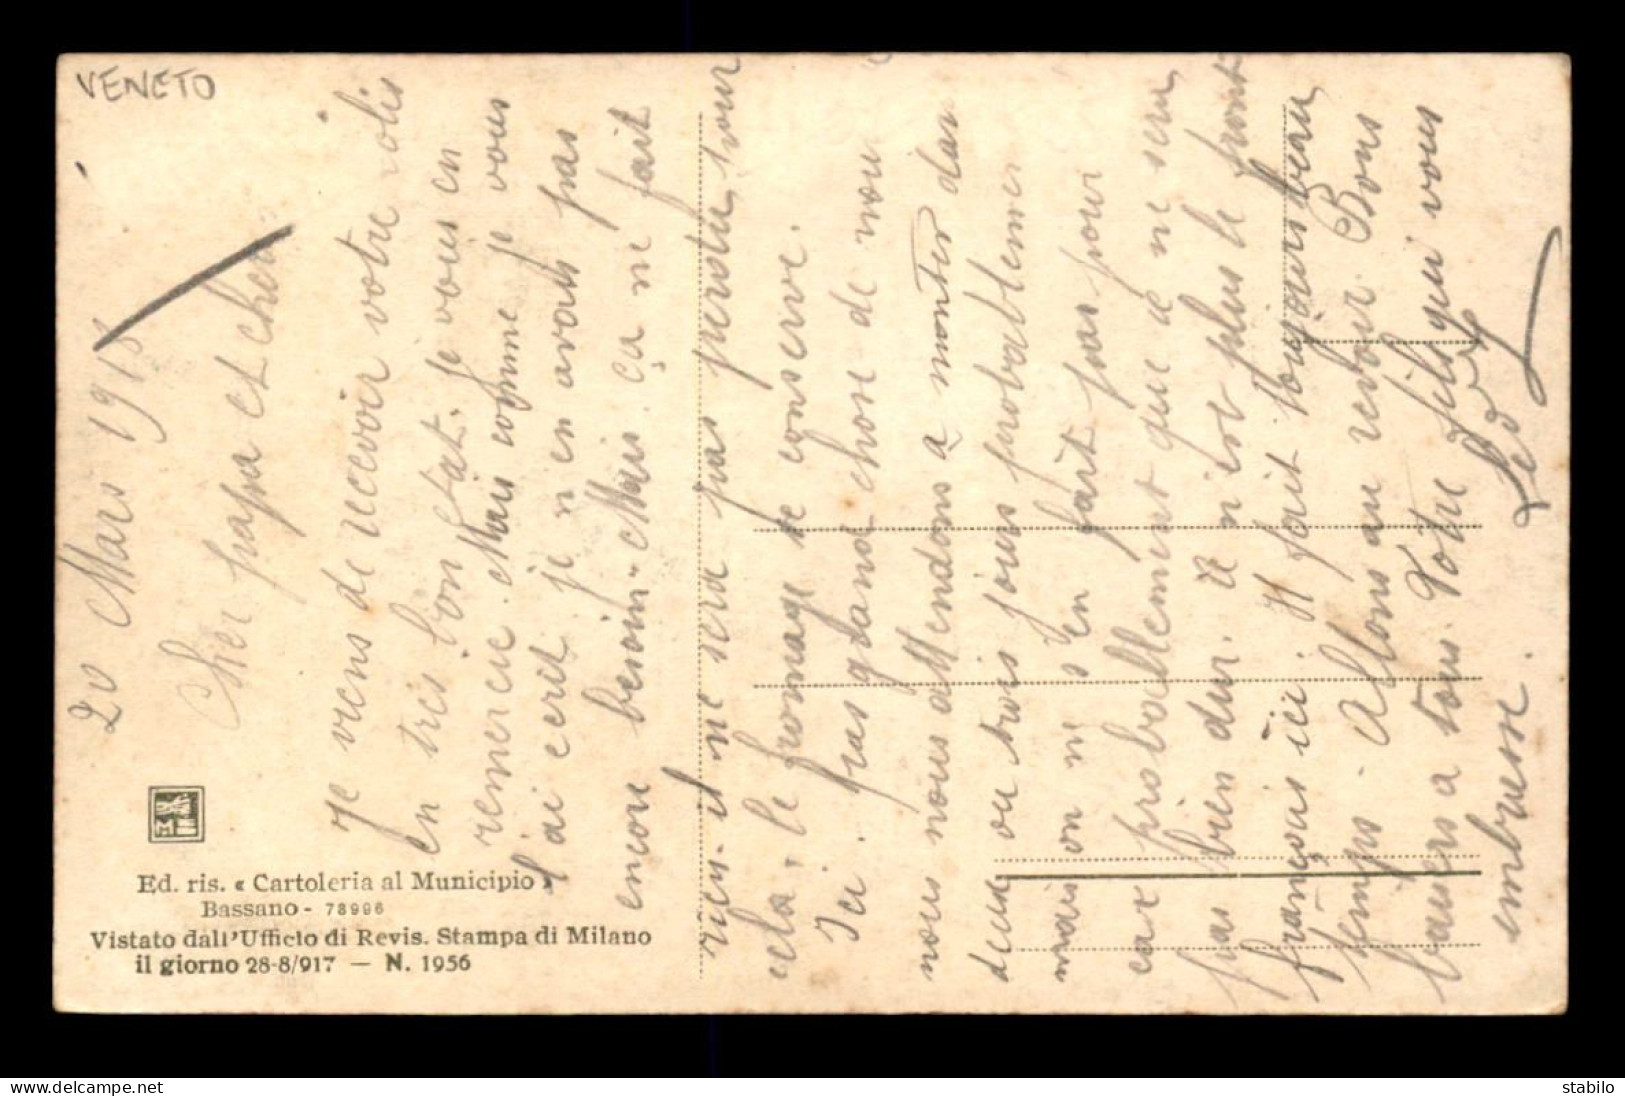 VENETO
20 Mars 1918
Cher papa et cher
Je viens de recevoir votre colis
en tres bon etat. je vous en
remercie. Mais comme je vous
l'ai ecrit je n en avais pas
encore besoin. Mais ça ne fait
rien. il ne sera pas perdu pour
cela, le fromage se conserve.
Ici pas grand chose de nou
nous nous attendons à monter dans
deux ou trois jours probablemen
mais on ne s'en fait pas pour
car proballement que ce ne sera
pas bien dur. Ce n'est plus le front
français ici. Il fait toujours beau
temps. Allons au revoir Bons
baisers a tous Votre fils qui vous
embrasse.
Ed. ris. « Cartoleria al Municipio »
Bassano - 78996
Vistato dall'Ufficio di Revis. Stampa di Milano
il giorno 28-8/917 — N. 1956
www.delcampe.net
stabilo